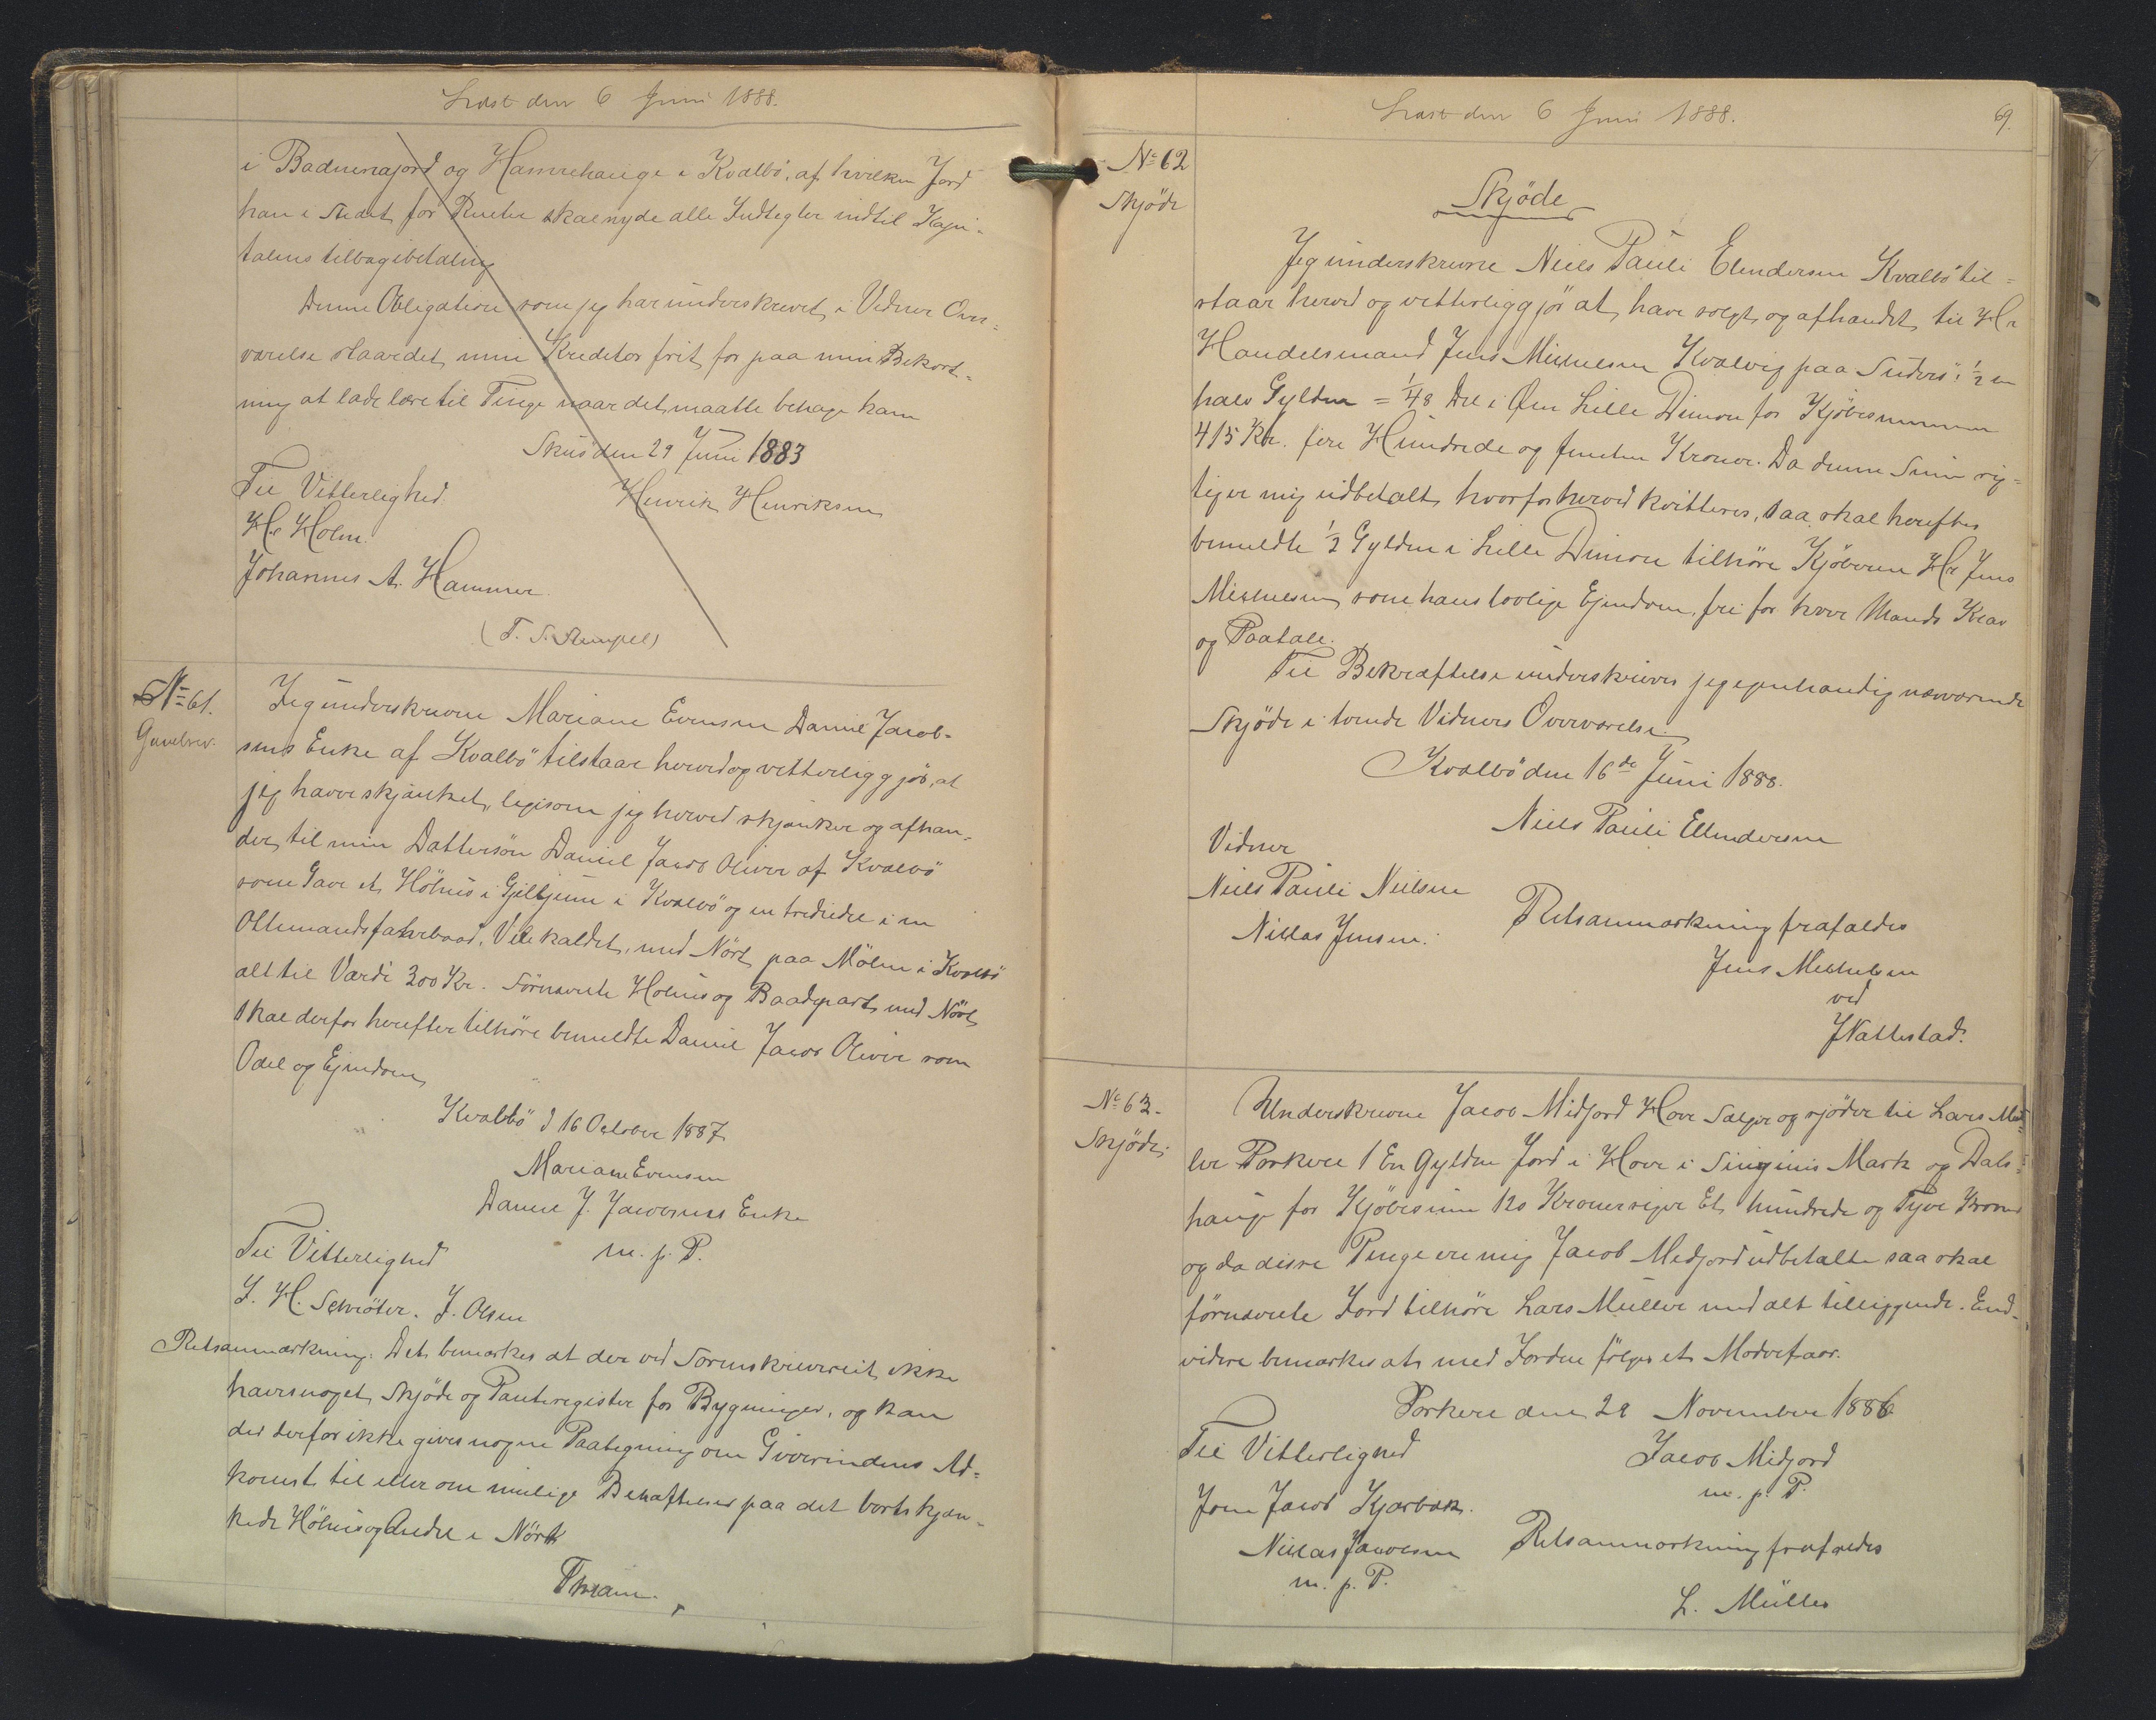 Læst den 6 Juni 1888.
i Baduinajord og Hamrehauge i Kvalbö, af hvilken Jord
han i Stedet for Renter skal nyde alle Indtegter indtil Kapi-
talens tilbagebetaling
Denne Obligation som jeg har underskrevet i Vidner Over-
værelse staar det min Kreditor frit for paa min Bekost-
ning at lade læse til Tinge naar det maatte behage ham
den 29 Juni 1883
Til Vitterlighed. Henrik Henriksen
Holm.
Johannes A. Hammer
(T. S. Stempel)
No 61.
Gavebrev.
Jeg underskrevne Mariane Evensen Daniel Jacob-
sens Enke af Kvalbö tilstaar herved og vitterliggjör, at
jeg haver skjænket, ligesom jeg herved skjænker og afhæn-
der, til min Dattersön Daniel Jacob Oliver af Kvalbö
som Gave et Höhus i i Kvalbö og en trediedel i en
Ottemandsfarhrbaad, kaldet, med Nöst paa Mölen i Kvalbö
alt til Værdi 300 Kr. Förnævnte Höhus og Baadepart med Nöst
skal derfor herefter tilhöre bemeldte Daniel Jacob Oliver som
Odel og Ejendom
Kvalbö d 16 October 1887
Mariane Evensen
Daniel J. Jacobsens Enke
m. p. P.
Til Vitterlighed
J. H. Schröter. J. Olsen
Retsanmærkning: Det bemærkes at der ved Sorenskriveriet ikke
haves noget Skjöde og Panteregister for Bygninger, og kan
der derfor ikke gives nogen Paategning om Giverindens Ad-
komst til eller om mulige Behæftelser paa det bortskjæn-
kede Höhus og Andel i Nöst
No 62
Skjöde
Læst den 6 Juni 1888. 69.
Skjöde
Jeg underskrevne Niels Pauli Elendersen Kvalbö til-
staar herved og vitterliggjör at have solgt og afhændet til Hr
Handelsmand Jens Michelsen Kvalvig paa Suderö: 1/2 en
halv Gylden = 1/48 Del i Öen Lille Dimon for Kjöbesummen
415 Kr. fire Hundrede og femten Kroner. Da denne Sum rig-
tig er mig udbetalt, hvorfor herved kvitteres, saa skal herefter
bemeldte 1/2 Gylden i Lille Dimon tilhöre Kjöberen Hr Jens
Michelsen som hans lovlige Ejendom, fri for hver Mands Krav
og Paatale.
Til Bekræftelse underskriver jeg egenhændig nærværende
Skjöde i tvende Vidners Overværelse.
Kvalbö den 16de Juni 1888.
Niels Pauli Ellendersen
Vidner
Niels Pauli Nielsen
Niclas Jensen. Retsanmærkning frafaldes
Jens Michelsen
ved
J Nattestad.
No 63.
Skjöde.
Underskrevne Jacob Midjord Hove Sælger og sjöder til Lars Mül-
ler Porkere 1 En Gylden Jord i Hove i Mark og Dals-
hauge for Kjöbesum 120 Kroner siger Et hundrede og Tyve Kroner
og da disse Penge ere mig Jacob Medjord udbetalte saa skal
förnævnte Jord tilhöre Lars Müller med alt tilliggende. End-
videre bemærkes at med Jorden fölger et Modrefaar.
Porkere den 29 November 1886
Til Vitterlighed Jacob Midjord
m. p. P.
Joen Jacob Kjærbæk.
Niclas Jacobsen Retsanmærkning frafaldes
m. p. P.
L. Müller